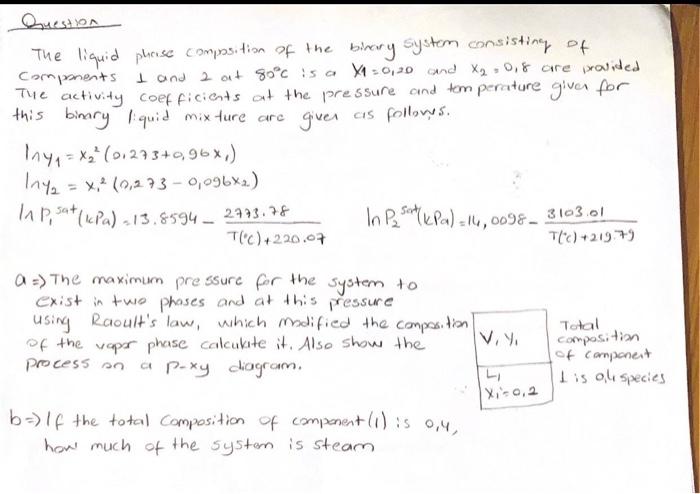 Question
The liquid phase composition of the binary system consisting of
components 1 and 2 at 80°C is a X1=0,20 and X2=0,8 are provided
The activity coefficients at the pressure and temperature given for
this binary liquid mixture are given as follows.
lnγ1 = x2² (0,273+0,96x1)
lnγ2 = x1² (0,273-0,096x2)
ln P1^sat (kPa) = 13.8594 - 2773.78 / (T(°C)+220.07)
ln P2^sat (kPa) = 14,0098 - 3103.01 / (T(°c)+219.79)
a => The maximum pressure for the system to
exist in two phases and at this pressure
using Raoult's law, which modified the composition
of the vapor phase calculate it. Also show the
process on a p-xy diagram.
V, y1
L1
x1=0,2
Total
composition
of component
1 is 0,4 species
b => If the total composition of component (1) is 0,4,
how much of the system is steam